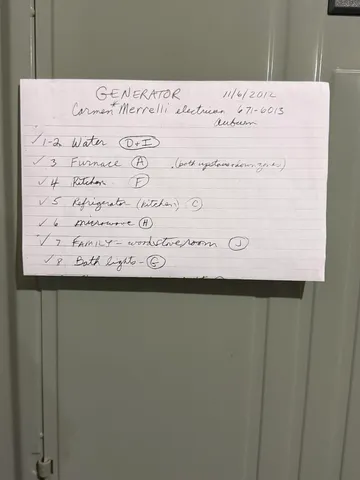 GENERATOR 11/6/2012
Carmen + Merrelli electrician 671-6013
Auburn
✓ 1-2 Water (D+I)
✓ 3 Furnace (A) (both upstairs+down zones)
✓ 4 Kitchen (F)
✓ 5 Refrigerator - (kitchen) (C)
✓ 6 microwave (H)
✓ 7 FAMILY - woodstove room (J)
✓ 8 Bath lights - (G)